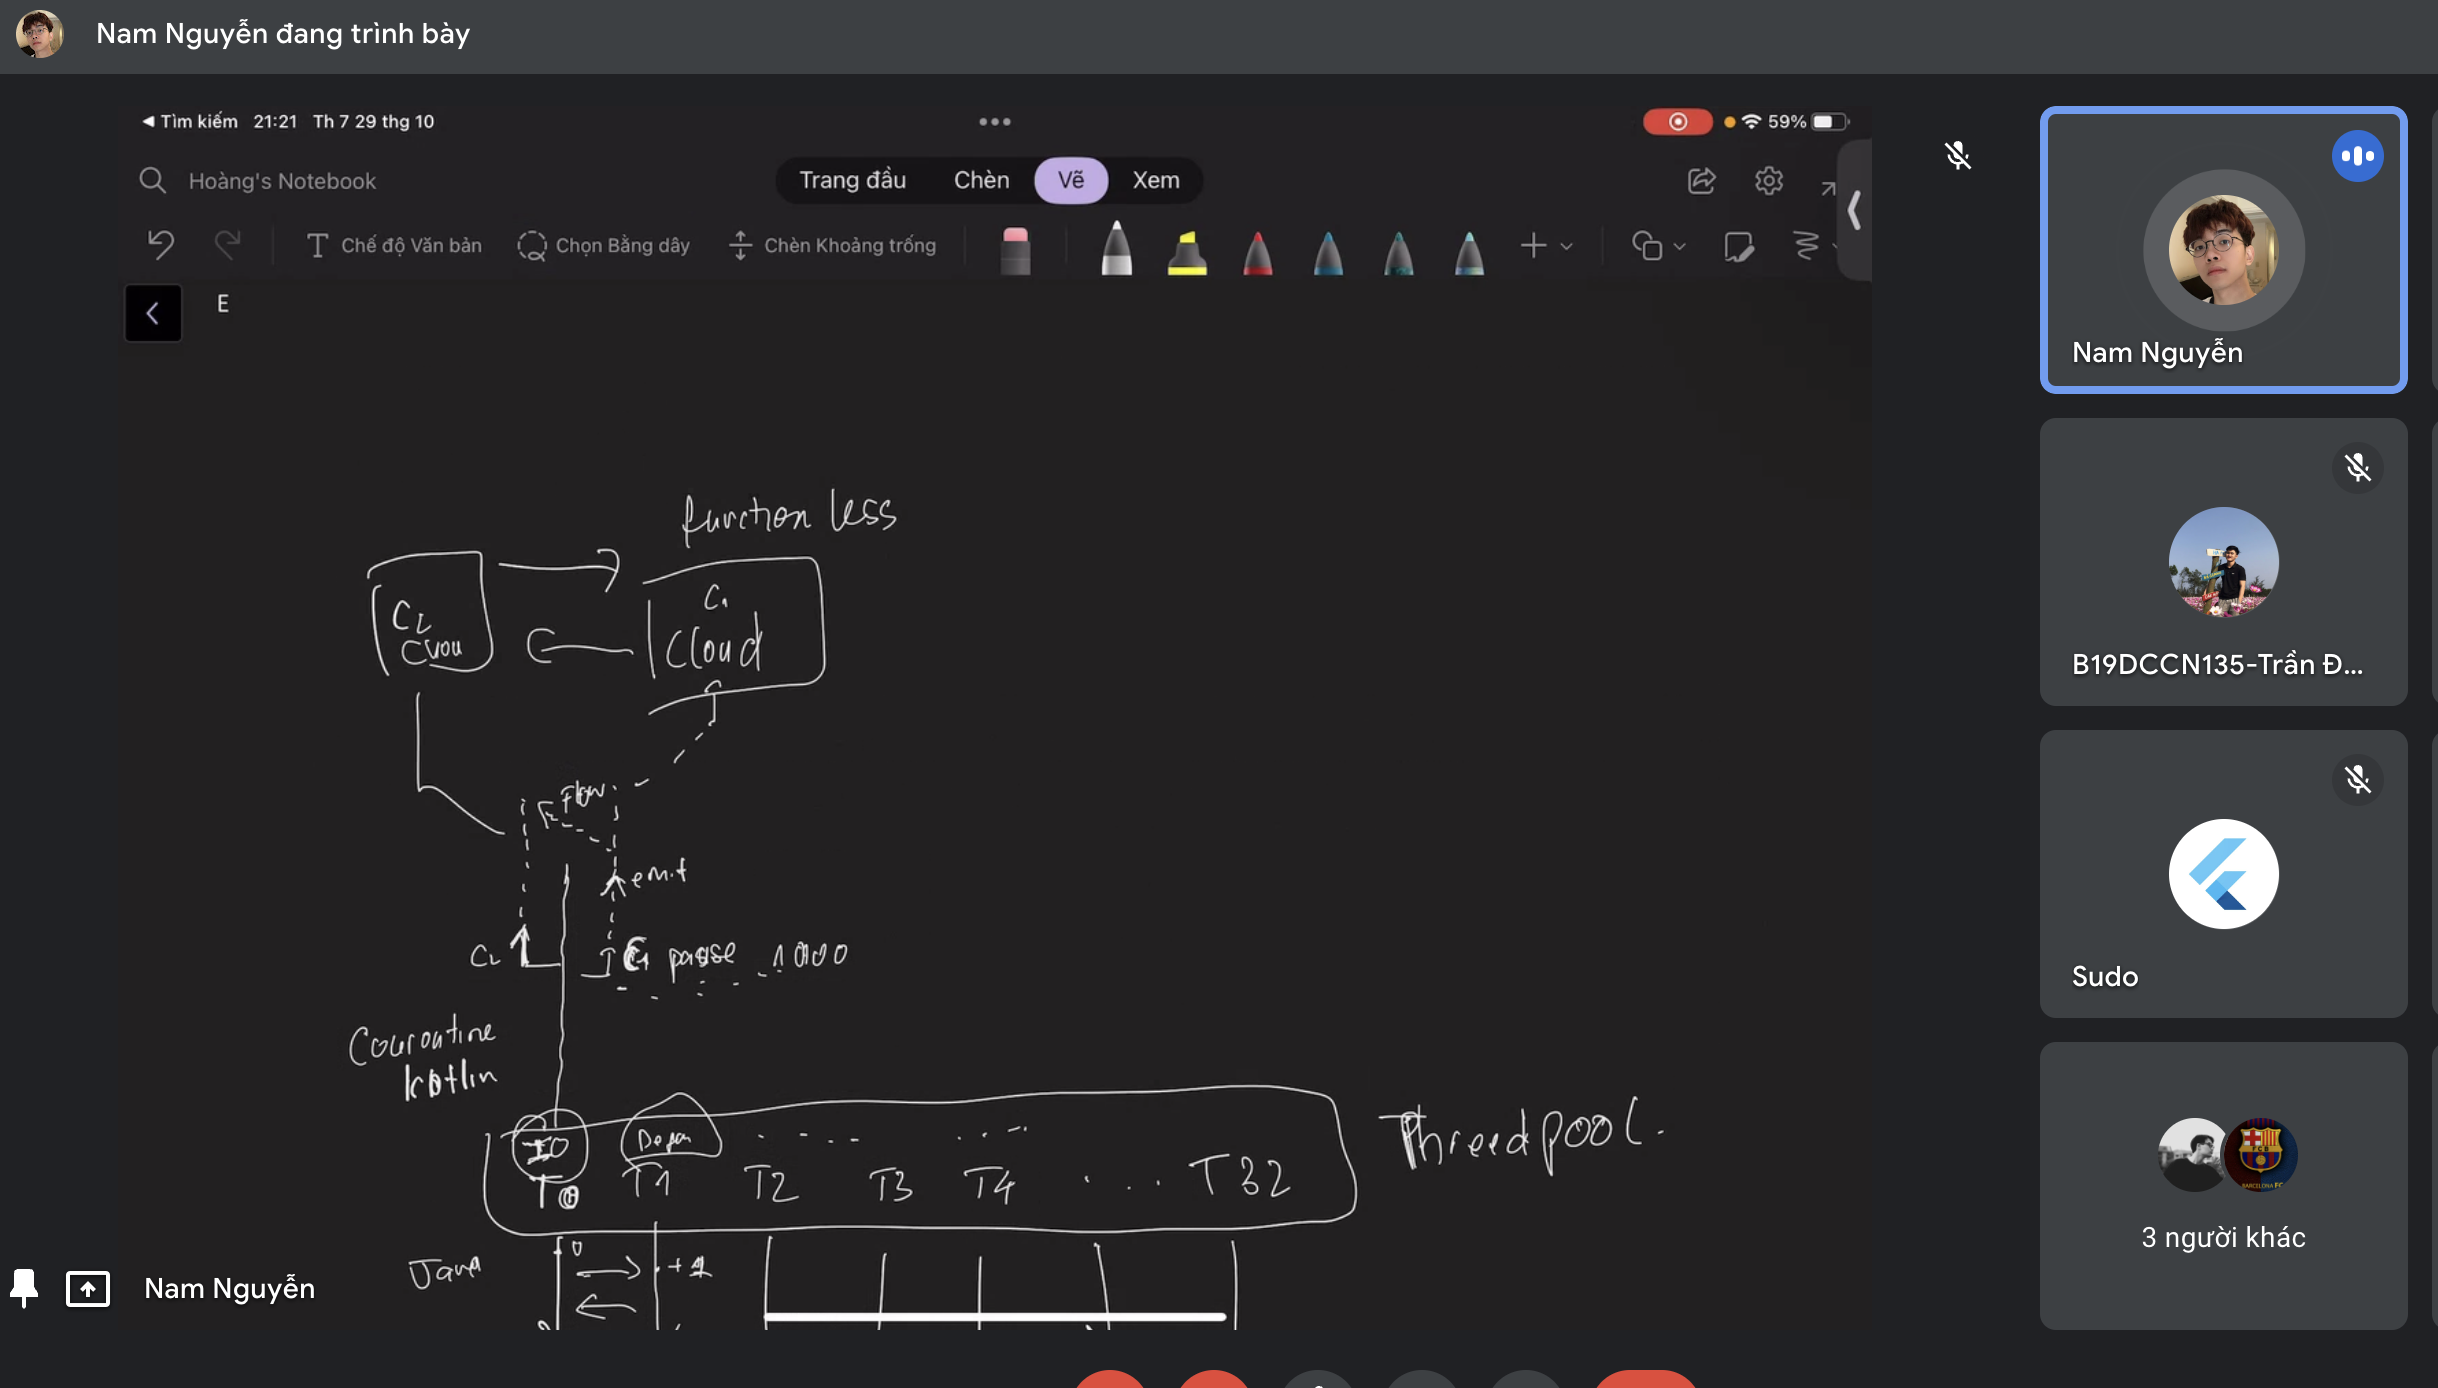 Nam Nguyễn đang trình bày
Tìm kiếm 21:21 Th 7 29 thg 10
59%
Hoàng's Notebook
Trang đầu Chèn Vẽ Xem
Chế độ Văn bản Chọn Bằng dây Chèn Khoảng trống
E
function less
C1
Cloud
C2
Flow
emit
C2
C1 passe 1000
Couroutine
kotlin
IO
T0 T1 T2 T3 T4 ... T32
Threedpool.
Java
0
+1
Nam Nguyễn
Nam Nguyễn
B19DCCN135-Trần Đ...
Sudo
3 người khác